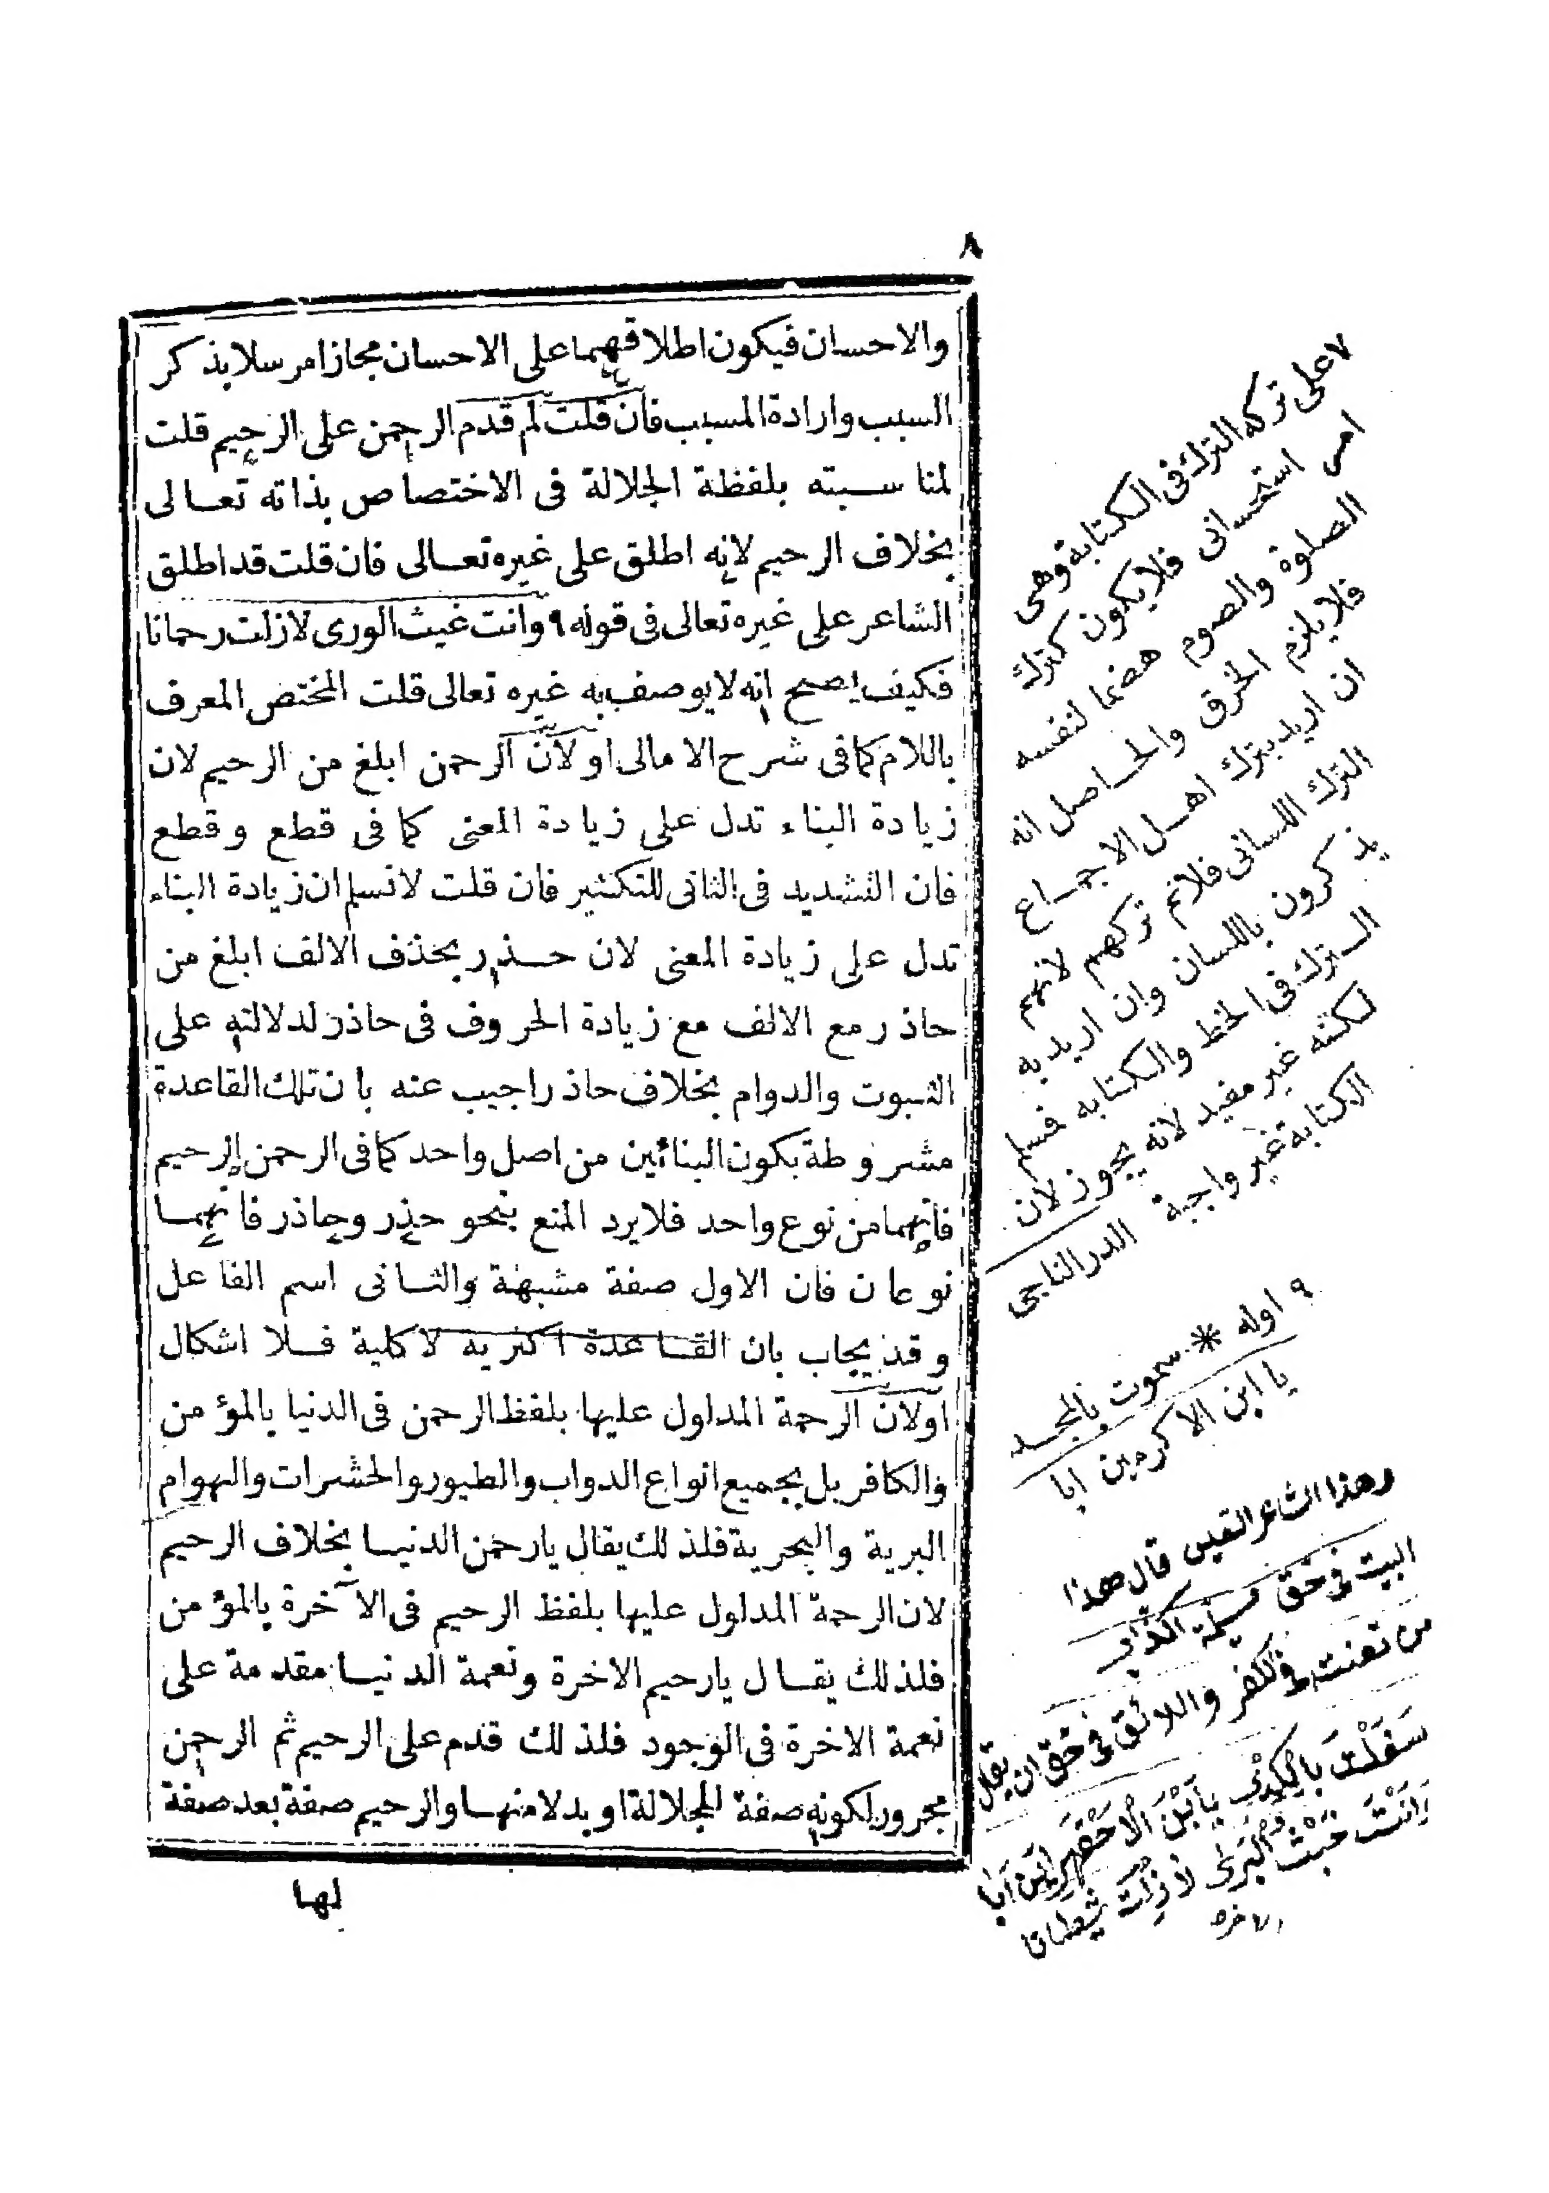 ٨
والاحسان فيكون اطلاقهما على الاحسان مجازا مرسلا بذكر
السبب وارادة المسبب فان قلت لم قدم الرحمن على الرحيم قلت
لمناسبته بلفظة الجلالة فى الاختصاص بذاته تعالى
بخلاف الرحيم لانه اطلق على غيره تعالى فان قلت قد اطلق
الشاعر على غيره تعالى فى قوله ٩ وانت غيث الورى لازلت رحمانا
فكيف يصح انه لا يوصف به غيره تعالى قلت المختص المعرف
باللام كما فى شرح الامالى او لان الرحمن ابلغ من الرحيم لان
زيادة البناء تدل على زيادة المعنى كما فى قطع وقطع
فان التشديد فى الثانى للتكثير فان قلت لا نسلم ان زيادة البناء
تدل على زيادة المعنى لان حذر بحذف الالف ابلغ من
حاذر مع الالف مع زيادة الحروف فى حاذر لدلالته على
الثبوت والدوام بخلاف حاذر اجيب عنه بان تلك القاعدة
مشروطة بكون البنائين من اصل واحد كما فى الرحمن الرحيم
فانهما من نوع واحد فلا يرد المنع بنحو حذر وحاذر فانهما
نوعان فان الاول صفة مشبهة والثانى اسم الفاعل
وقد يجاب بان القاعدة اكثرية لا كلية فلا اشكال
او لان الرحمة المدلول عليها بلفظ الرحمن فى الدنيا بالمؤمن
والكافر بل بجميع انواع الدواب والطيور والحشرات والهوام
البرية والبحرية فلذلك يقال يا رحمن الدنيا بخلاف الرحيم
لان الرحمة المدلول عليها بلفظ الرحيم فى الآخرة بالمؤمن
فلذلك يقال يا رحيم الاخرة ونعمة الدنيا مقدمة على
نعمة الاخرة فى الوجود فلذلك قدم على الرحيم ثم الرحمن
مجرور لكونه صفة للجلالة او بدلا منها والرحيم صفة بعد صفة
لها
٧ على تركه الترك فى الكتابة وهى
امر استحسانى فلا يكون كترك
الصلوة والصوم هضما لنفسه
فلا يلزم الخرق والحاصل انه
ان اريد بترك اهل الاجماع
الترك اللسانى فلانم تركهم لانهم
يذكرون باللسان وان اريد به
الترك فى الخط والكتابه فسلم
لكنه غير مفيد لانه يجوز لان
الكتابة غير واجبة الدر الناجى
٩ اوله * سموت بالمجد
يا ابن الاكرمين ابا
وهذا الشاعر قال هذا
البيت فى حق مسيلمة الكذاب
من تعنته فى الكفر واللائق فى حق ان يقال
يا ابن الاحقرين ابا
وانت لازلت شيطانا